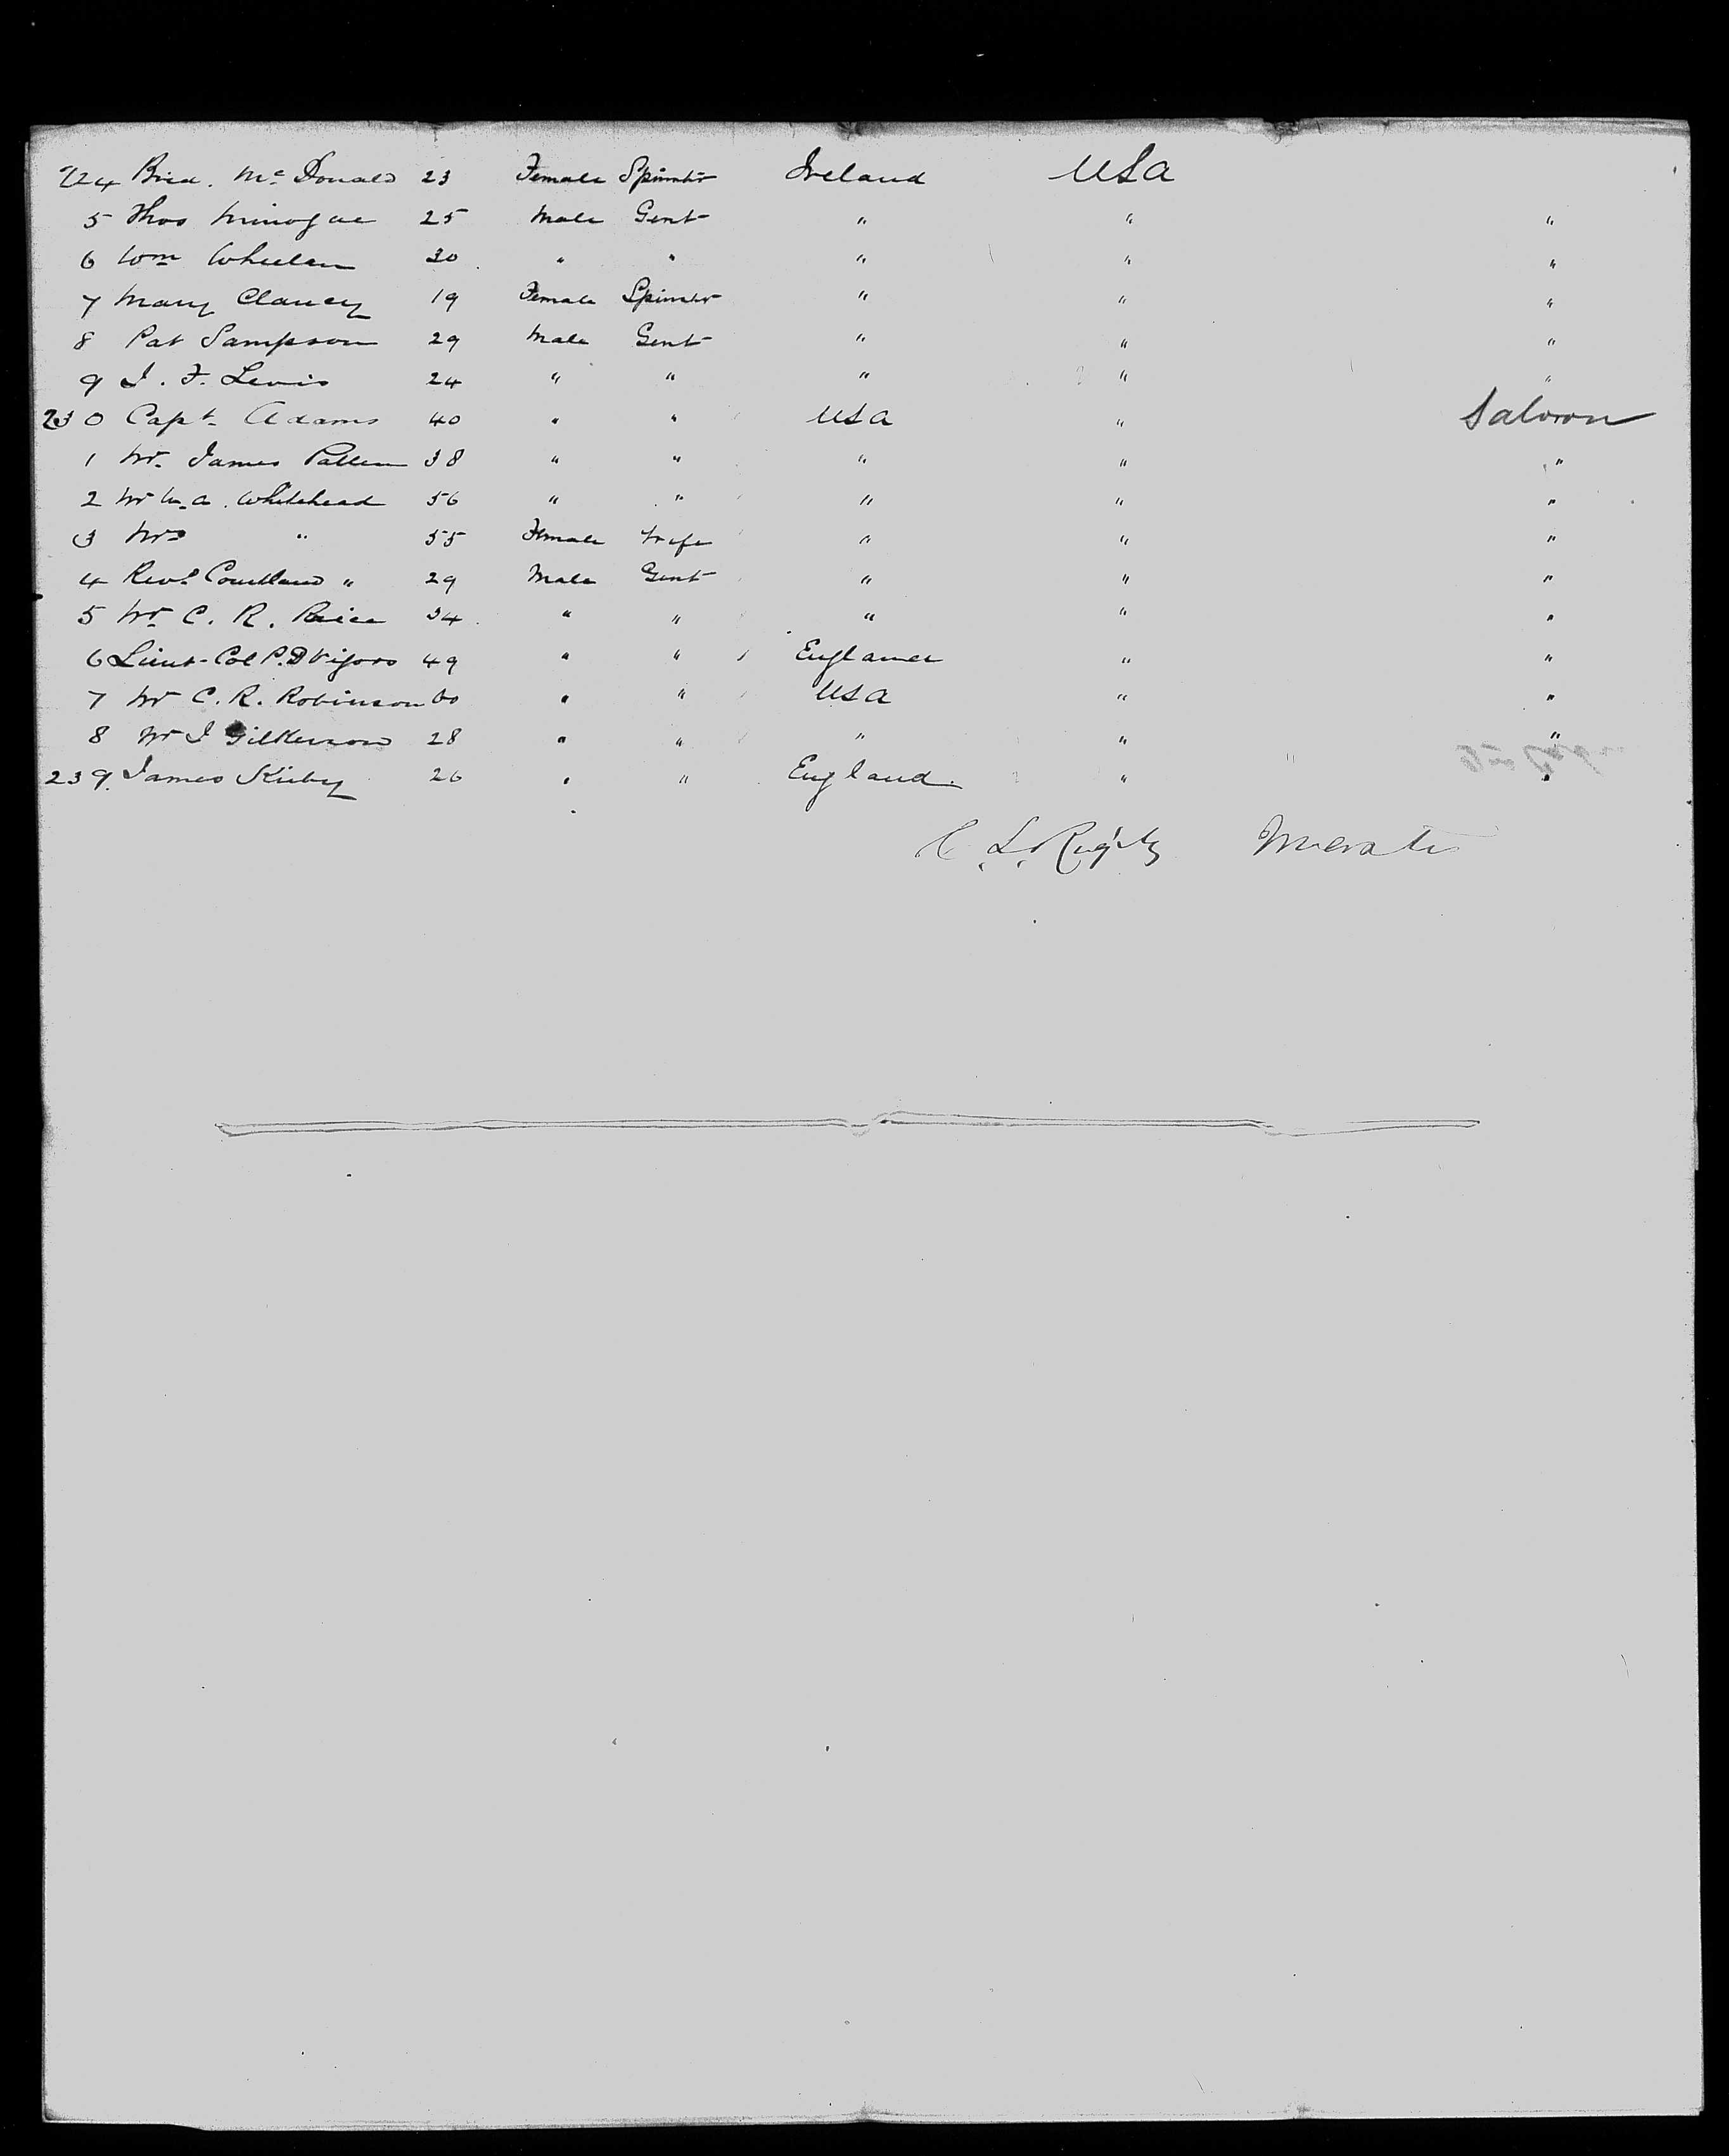 224 Brid. McDonald 23 Female Spinstr Ireland USA
5 Thos Minogue 25 Male Gent " " "
6 Wm Whelen 30 " " " " "
7 Mary Clancy 19 Female Spinstr " " "
8 Pat Sampson 29 Male Gent " " "
9 J. F. Lewis 24 " " " " "
230 Capt. Adams 40 " " USA " Saloon
1 Mr. James Pallen 38 " " " " "
2 Mr Wm A. Whitehead 56 " " " " "
3 Mrs " 55 Female Wife " " "
4 Revd Courtland " 29 Male Gent " " "
5 Mr C. R. 34 " " " " "
6 Lieut-Col P. D Vigors 49 " " England " "
7 Mr C. R. Robinson 60 " " USA " "
8 Mr J Gilkerson 28 " " " " "
239. James Kirby 26 " " England. " "
C. L. Rigby Master